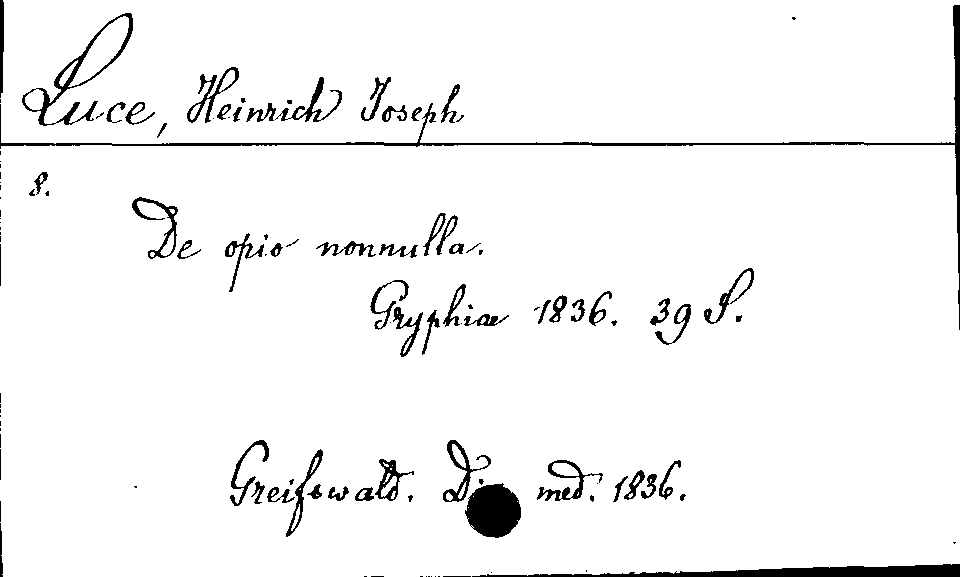 Luce, Heinrich Joseph
8.
De opio nonnulla.
Gryphiae 1836. 39 S.
Greifswald. med. 1836.